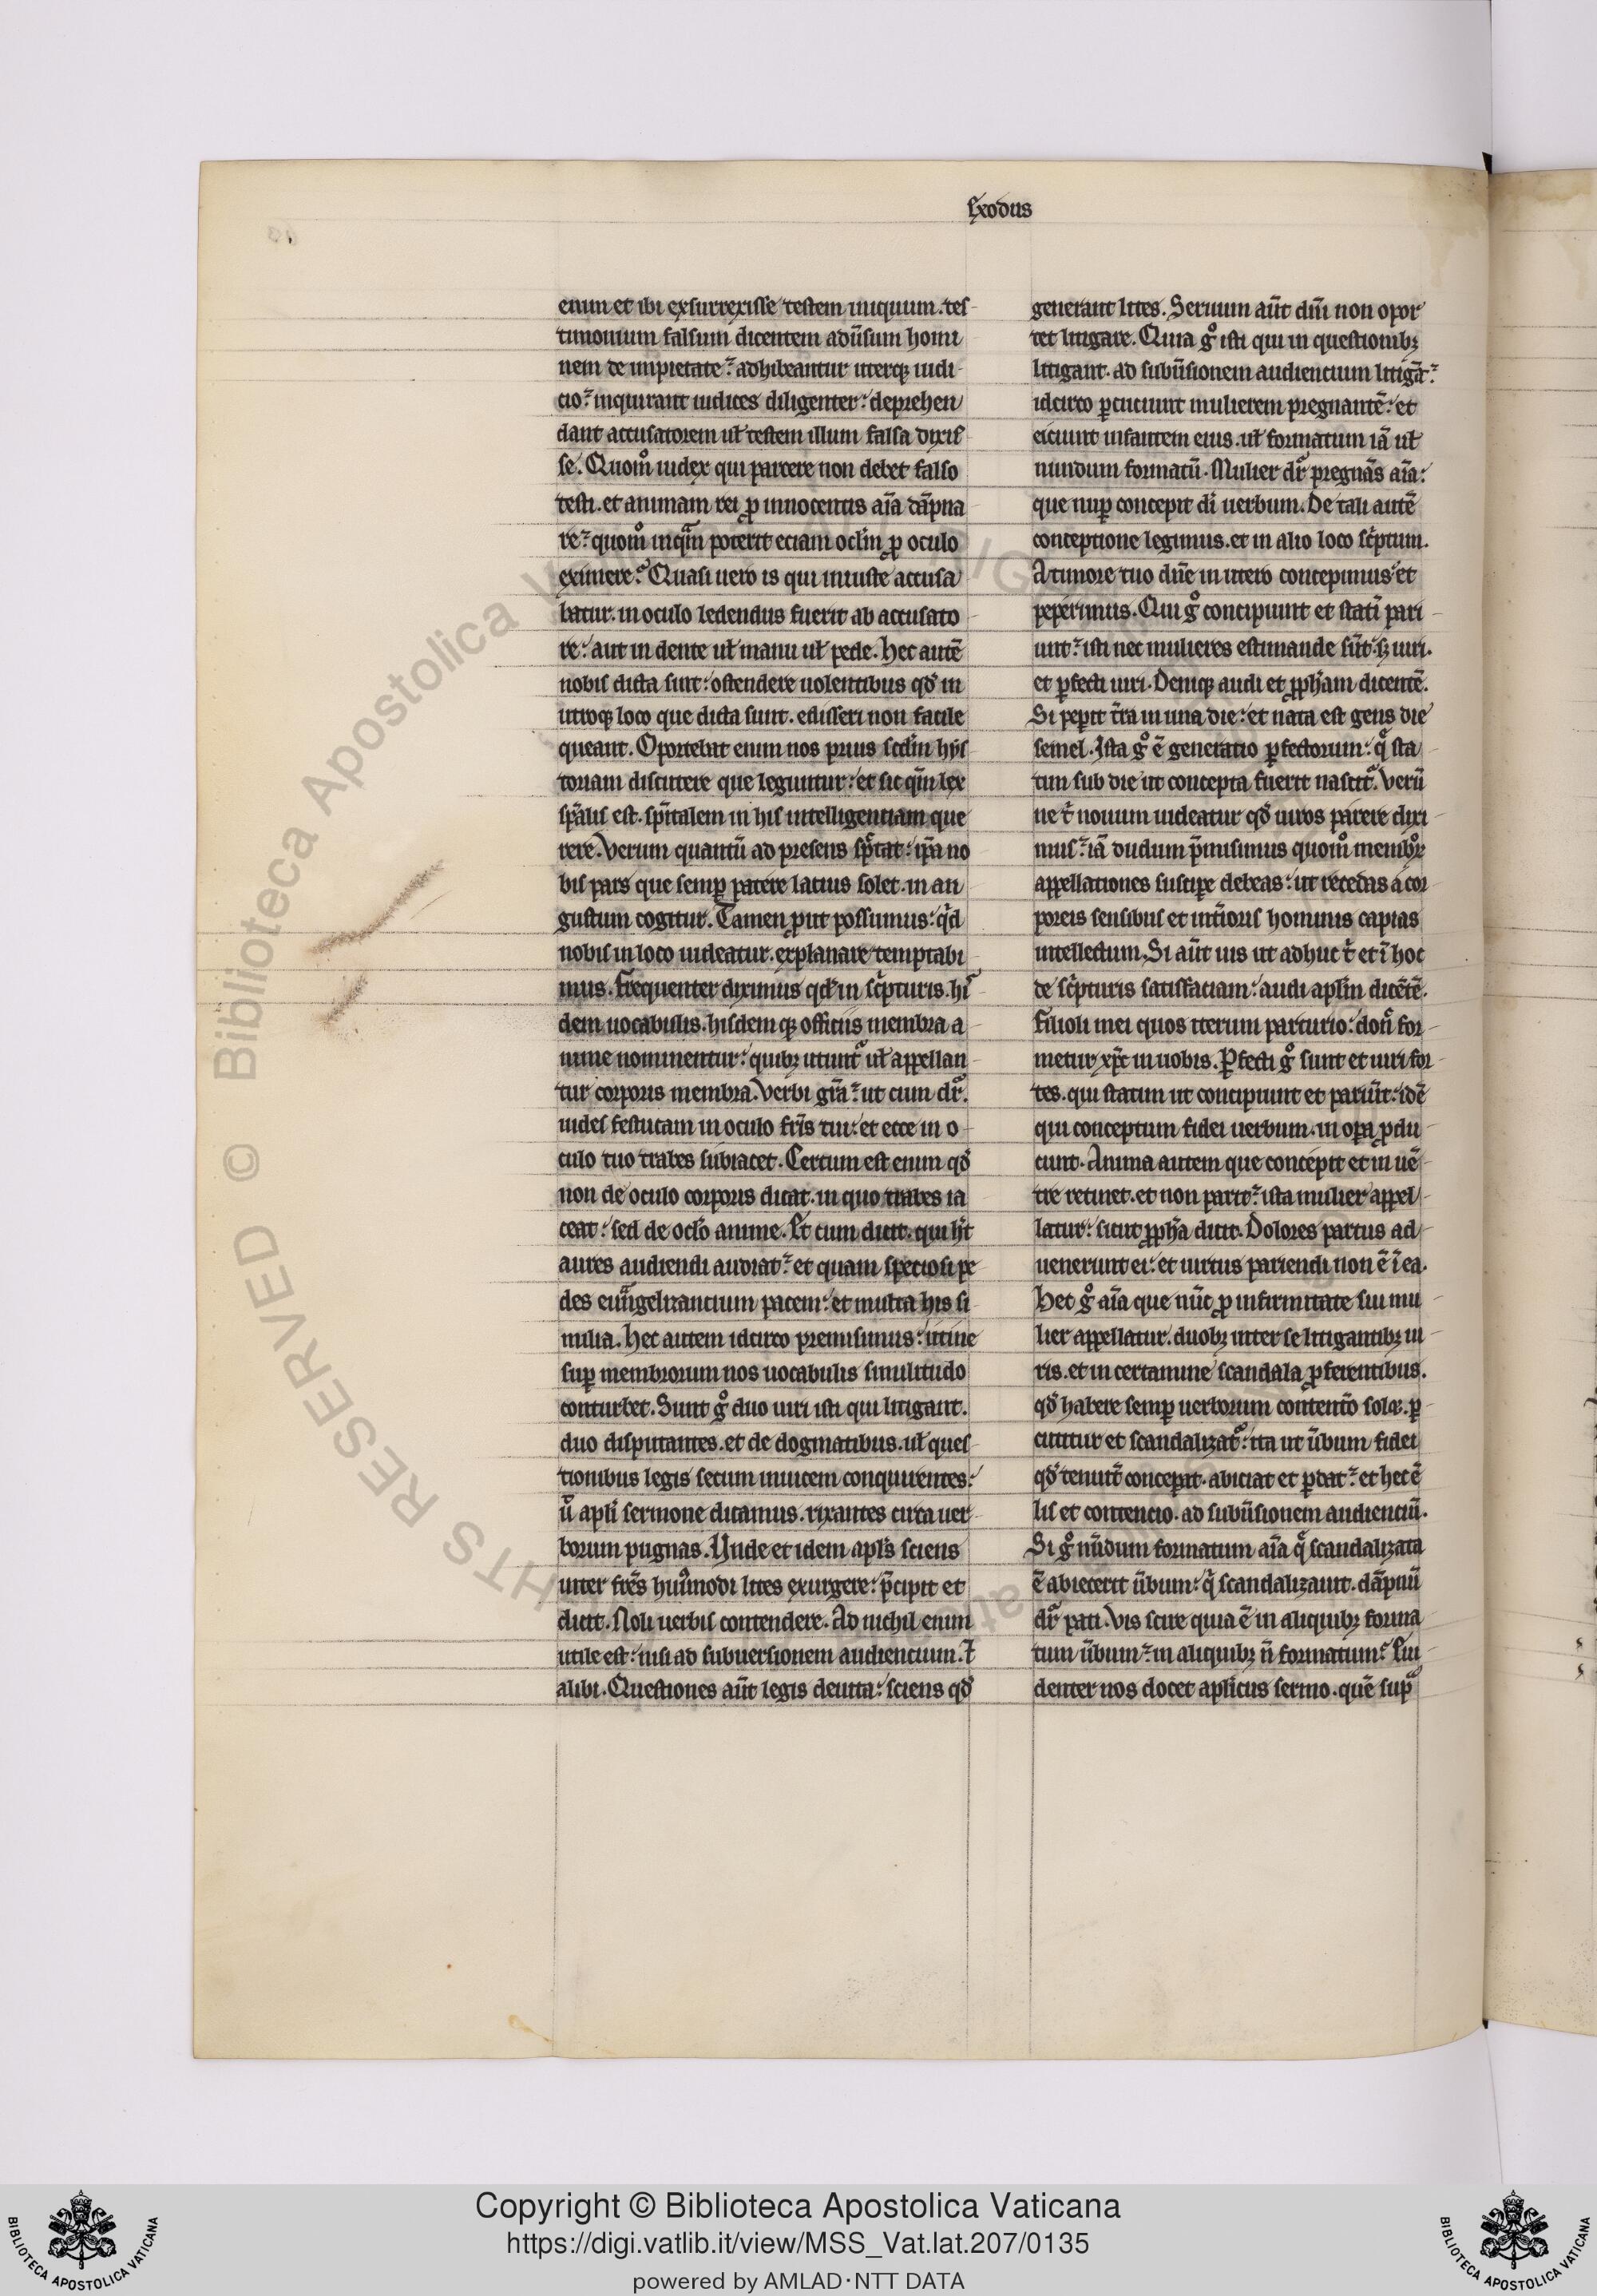 Exodus
enim et ibi exsurrexisse testem iniquum. tes-
timonium falsum dicentem adūsum homi
nem de impietate: adhibeantur uterqꝫ iudi-
cio: inquirant iudices diligenter: deprehen
dant accusatorem uł testem illum falsa dixis
se. Quomo iudex qui parcere non debet falso
testi. et animam rei ꝓ innocentis aīa dāpna
re: quomo inquā poterit eciam oclm̄ ꝓ oculo
eximere? Quasi uero is qui iniuste accusa
batur. in oculo ledendus fuerit ab accusato
re: aut in dente uł manu uł pede. Hec autē
nobis dicta sint: ostendere uolentibus qđ in
utroqꝫ loco que dicta sunt. edisseri non facile
queant. Oportebat enim nos prius scđm hys
toriam discutere que leguntur: et sic qm̄ lex
sp̄alis est. sp̄italem in his intelligentiam que
rere. Verum quantū ad presens sp̄ctat: ip̄a no
bis pars que semꝑ patere latius solet. in an
gustum cogitur. Tamen ꝓut possumus: qđ
nobis in loco uideatur. explanare temptabi
mus. Frequenter diximus qđ in sc̄pturis. hi
dem uocabulis. hisdemqꝫ officiis membra a
nime nominentur: quibꝫ utunt̄ uł appellan
tur corporis membra. Verbi gr̄a: ut cum dr̄.
uides festucam in oculo fr̄is tui: et ecce in o-
culo tuo trabes subiacet. Certum est enim qđ
non de oculo corporis dicat. in quo trabes ia
ceat: sed de oclo anime. Et cum dicit. qui ht
aures audiendi audiat: et quam speciosi pe
des euāngelizancium pacem: et multa his si
milia. Hec autem idcirco premisimus: ut ne
suꝑ membrorum nos uocabulis similitudo
conturbet. Sunt go duo uiri isti qui litigant.
duo disputantes. et de dogmatibus. uł ques-
tionibus legis secum inuicem conquirentes:
ū apli sermone dicamus. rixantes circa uer
borum pugnas. Unde et idem apls sciens
inter fr̄es huiusmodi lites exurgere: p̄cipit et
dicit. Noli uerbis contendere. Ad nichil enim
utile est: nisi ad subuersionem audiencium. ⁊
alibi. Questiones aūt legis deuita: sciens qđ
generant lites. Seruum aūt dn̄i non opor
tet litigare. Quia go isti qui in questionibꝫ
litigant. ad subūsionem audiencium litigāt:
idcirco ꝑcuciunt mulierem pregnantē: et
eiciunt infantem eius. uł formatum iā uł
nundum formatū. Mulier dr̄ pregnās aīa:
que nuꝑ concepit di uerbum. De tali autē
conceptione legimus. et in alio loco sc̄ptum.
A timore tuo dn̄e in utero concepimus: et
peperimus. Qui go concipiunt et statī pari-
unt: isti nec mulieres estimande sūt: sꝫ uiri.
et ꝑfecti uiri. Deniqꝫ audi et ꝓph̄am dicentē.
Si peperit t̄ra in una die: et nata est gens die
semel. Ista go ē generatio ꝑfectorum: q̄ sta
tim sub die ut concepta fuerit nascit̄. Verū
ne t̄ nouum uideatur qđ uiros parere dixi-
mus: iā dudum p̄misimus quomo membroꝝ
appellationes suscipe debeas: ut recedas a cor
poreis sensibus et intioris hominis capias
intellectum. Si aūt uis ut adhuc t̄ et ī hoc
de sc̄pturis satisfaciam: audi aplm dicētē.
Filioli mei quos iterum parturio: don̄ for-
metur xp̄c in uobis. Ꝑfecti go sunt et uiri for-
tes. qui statim ut concipiunt et pariūt: idē
qui conceptum fidei uerbum. in opa ꝓdu
cunt. Anima autem que concepit et in uē
tre retinet. et non parit: ista mulier appel-
latur: sicut ꝓph̄a dicit. Dolores partus ad
uenerunt ei: et uirtus pariendi non ē ī ea.
Hec go aīa que nūc ꝓ infirmitate sui mu
lier appellatur. duobꝫ inter se litigantibꝫ ui
ris. et in certamine scandala ꝓferentibus.
qđ habere semꝑ uerborum contentō solꝫ. ꝑ-
cutitur et scandalizat̄: ita ut ūbum fidei
qđ tenuit̄ conceperat. abiciat et ꝑdat: et hec ē
lis et contencio. ad subūsionem audienciū.
Si go nūdum formatum aīa q̄ scandalizata
ē abiecerit ūbum: q̄ scandalizauit. dāpnū
dr̄ pati. Vis scire quia ē in aliquibꝫ forma
tum ūbum: in aliquibꝫ n̄ formatum: Eui
denter nos docet aplicus sermo. quē sup̄
Copyright © Biblioteca Apostolica Vaticana
https://digi.vatlib.it/view/MSS_Vat.lat.207/0135
powered by AMLAD·NTT DATA